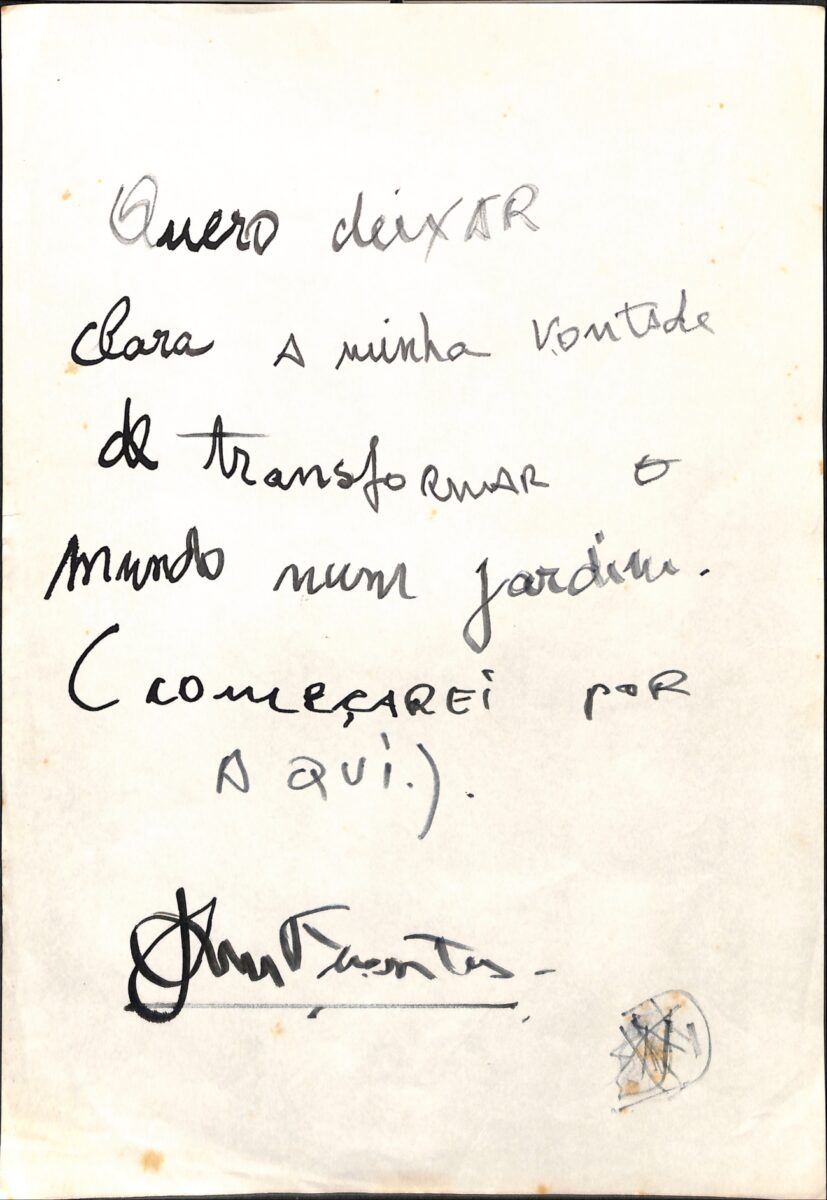 Quero deixAR
clara A minha vontade
de transfoRMAR o
mundo num jardim.
(COMEÇAREi poR
AQUi.).